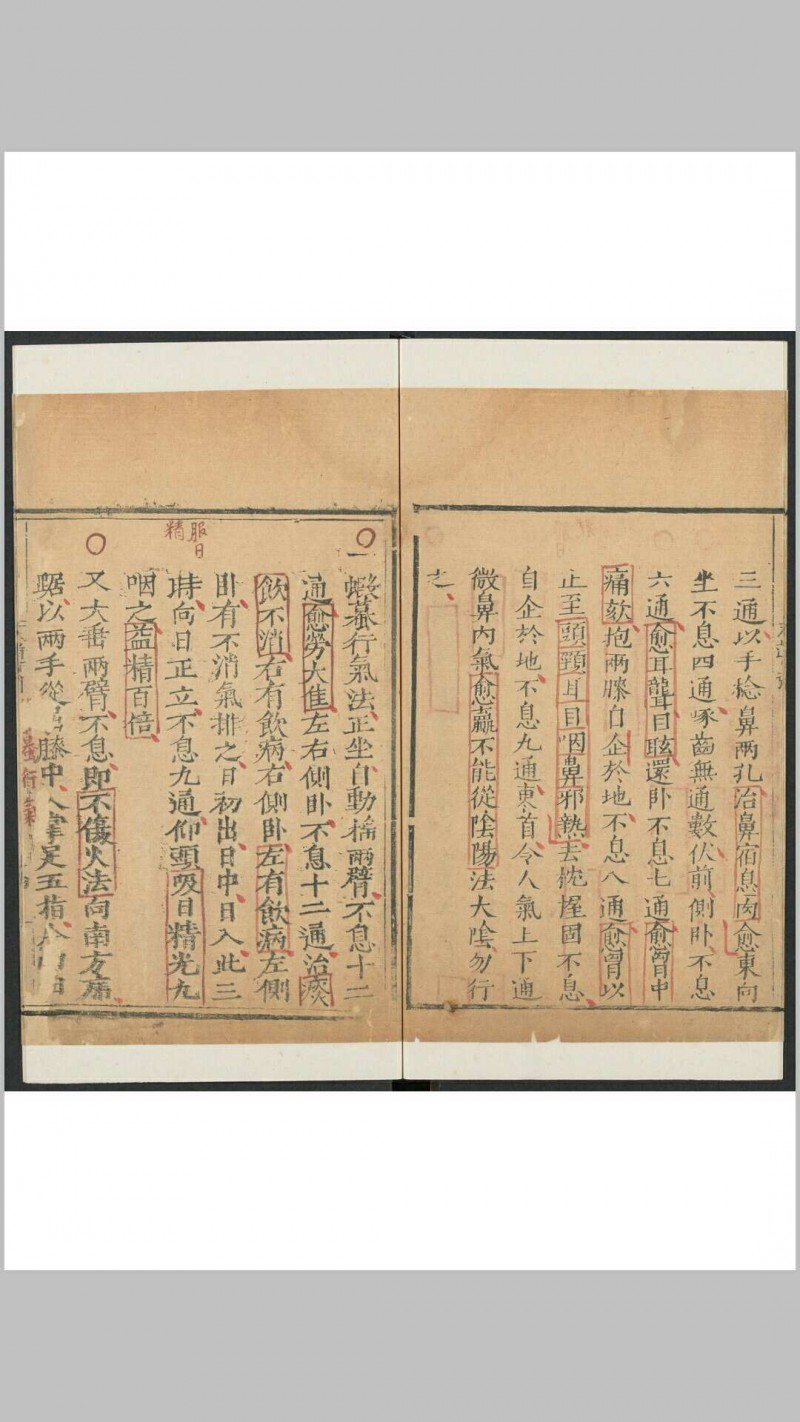 三通以手捻鼻兩孔治鼻宿息肉愈東向
坐不息四通啄齒無通數伏前側卧不息
六通愈耳聾目眩還卧不息七通愈胷中
痛欬抱兩膝自企於地不息八通愈胷以
止至頭頸耳目咽鼻邪熱去枕握固不息
自企於地不息九通東首令人氣上下通
微鼻內氣愈羸不能從陰陽法大陰勿行
之
一蝦蟇行氣法正坐自動搖兩臂不息十二
通愈勞大佳左右側卧不息十二通治痰
飲不消右有飲病右側卧左有飲病左側
卧有不消氣排之日初出日中日入此三
時向日正立不息九通仰頭吸日精光九
咽之益精百倍
服日
精
又大垂兩臂不息即不傷火法向南方蹲
踞以兩手從膝中入掌足五指